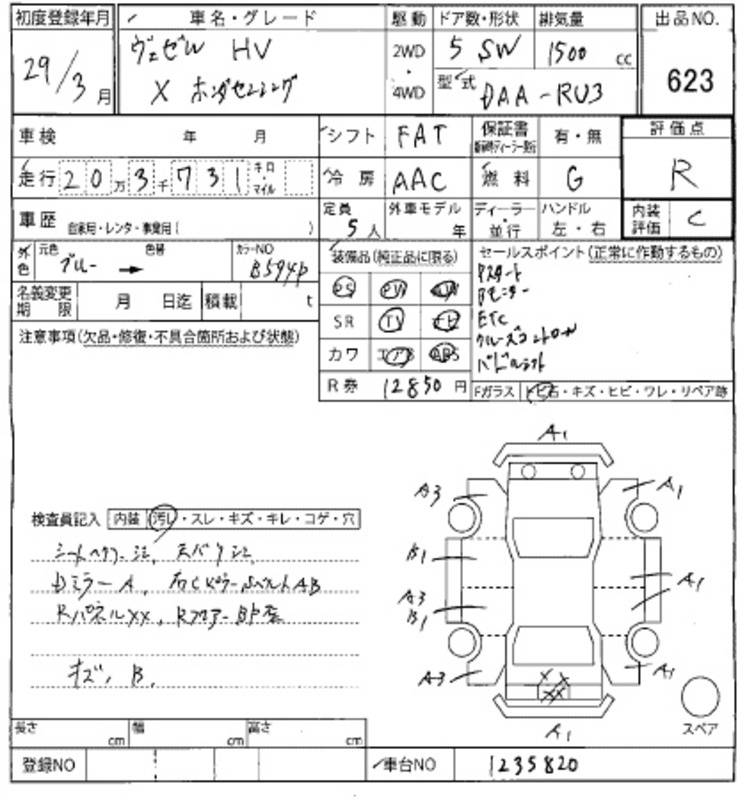 初度登録年月 車名・グレード 駆動 ドア数・形状 排気量 出品NO.
29/3月 ヴェゼル HV 2WD・4WD 5 SW 1500cc 623
X ホンダセンシング 型式 DAA-RU3
車検 年 月 シフト FAT 保証書 有・無 評価点
走行 20万3千731 キロ マイル 冷房 AAC 燃料 G R
車歴 自家用・レンタ・事業用( ) 定員 5人 外車モデル 年 ディーラー・並行 ハンドル 左・右 内装評価 C
外色 元色 ブルー → 色替 カラーNO B594P 装備品(純正品に限る) セールスポイント(正常に作動するもの)
名義変更期限 月 日迄 積載 t PS PW AW Pスタート
Bモニター
注意事項(欠品・修復・不具合箇所および状態) SR TV ナビ ETC
クルーズコントロール
カワ エアB ABS パドルシフト
R券 12850円 Fガラス トビ石・キズ・ヒビ・ワレ・リペア跡
A1
A3 A1
検査員記入 内装 汚レ・スレ・キズ・キレ・コゲ・穴
B1
DミラーA、右Cピラー AB
A3 B1 A1
RパネルXX、Rフロアー
キズ、B、
A3 A1
A1
スペア
長さ cm 幅 cm 高さ cm
登録NO 車台NO 1235820